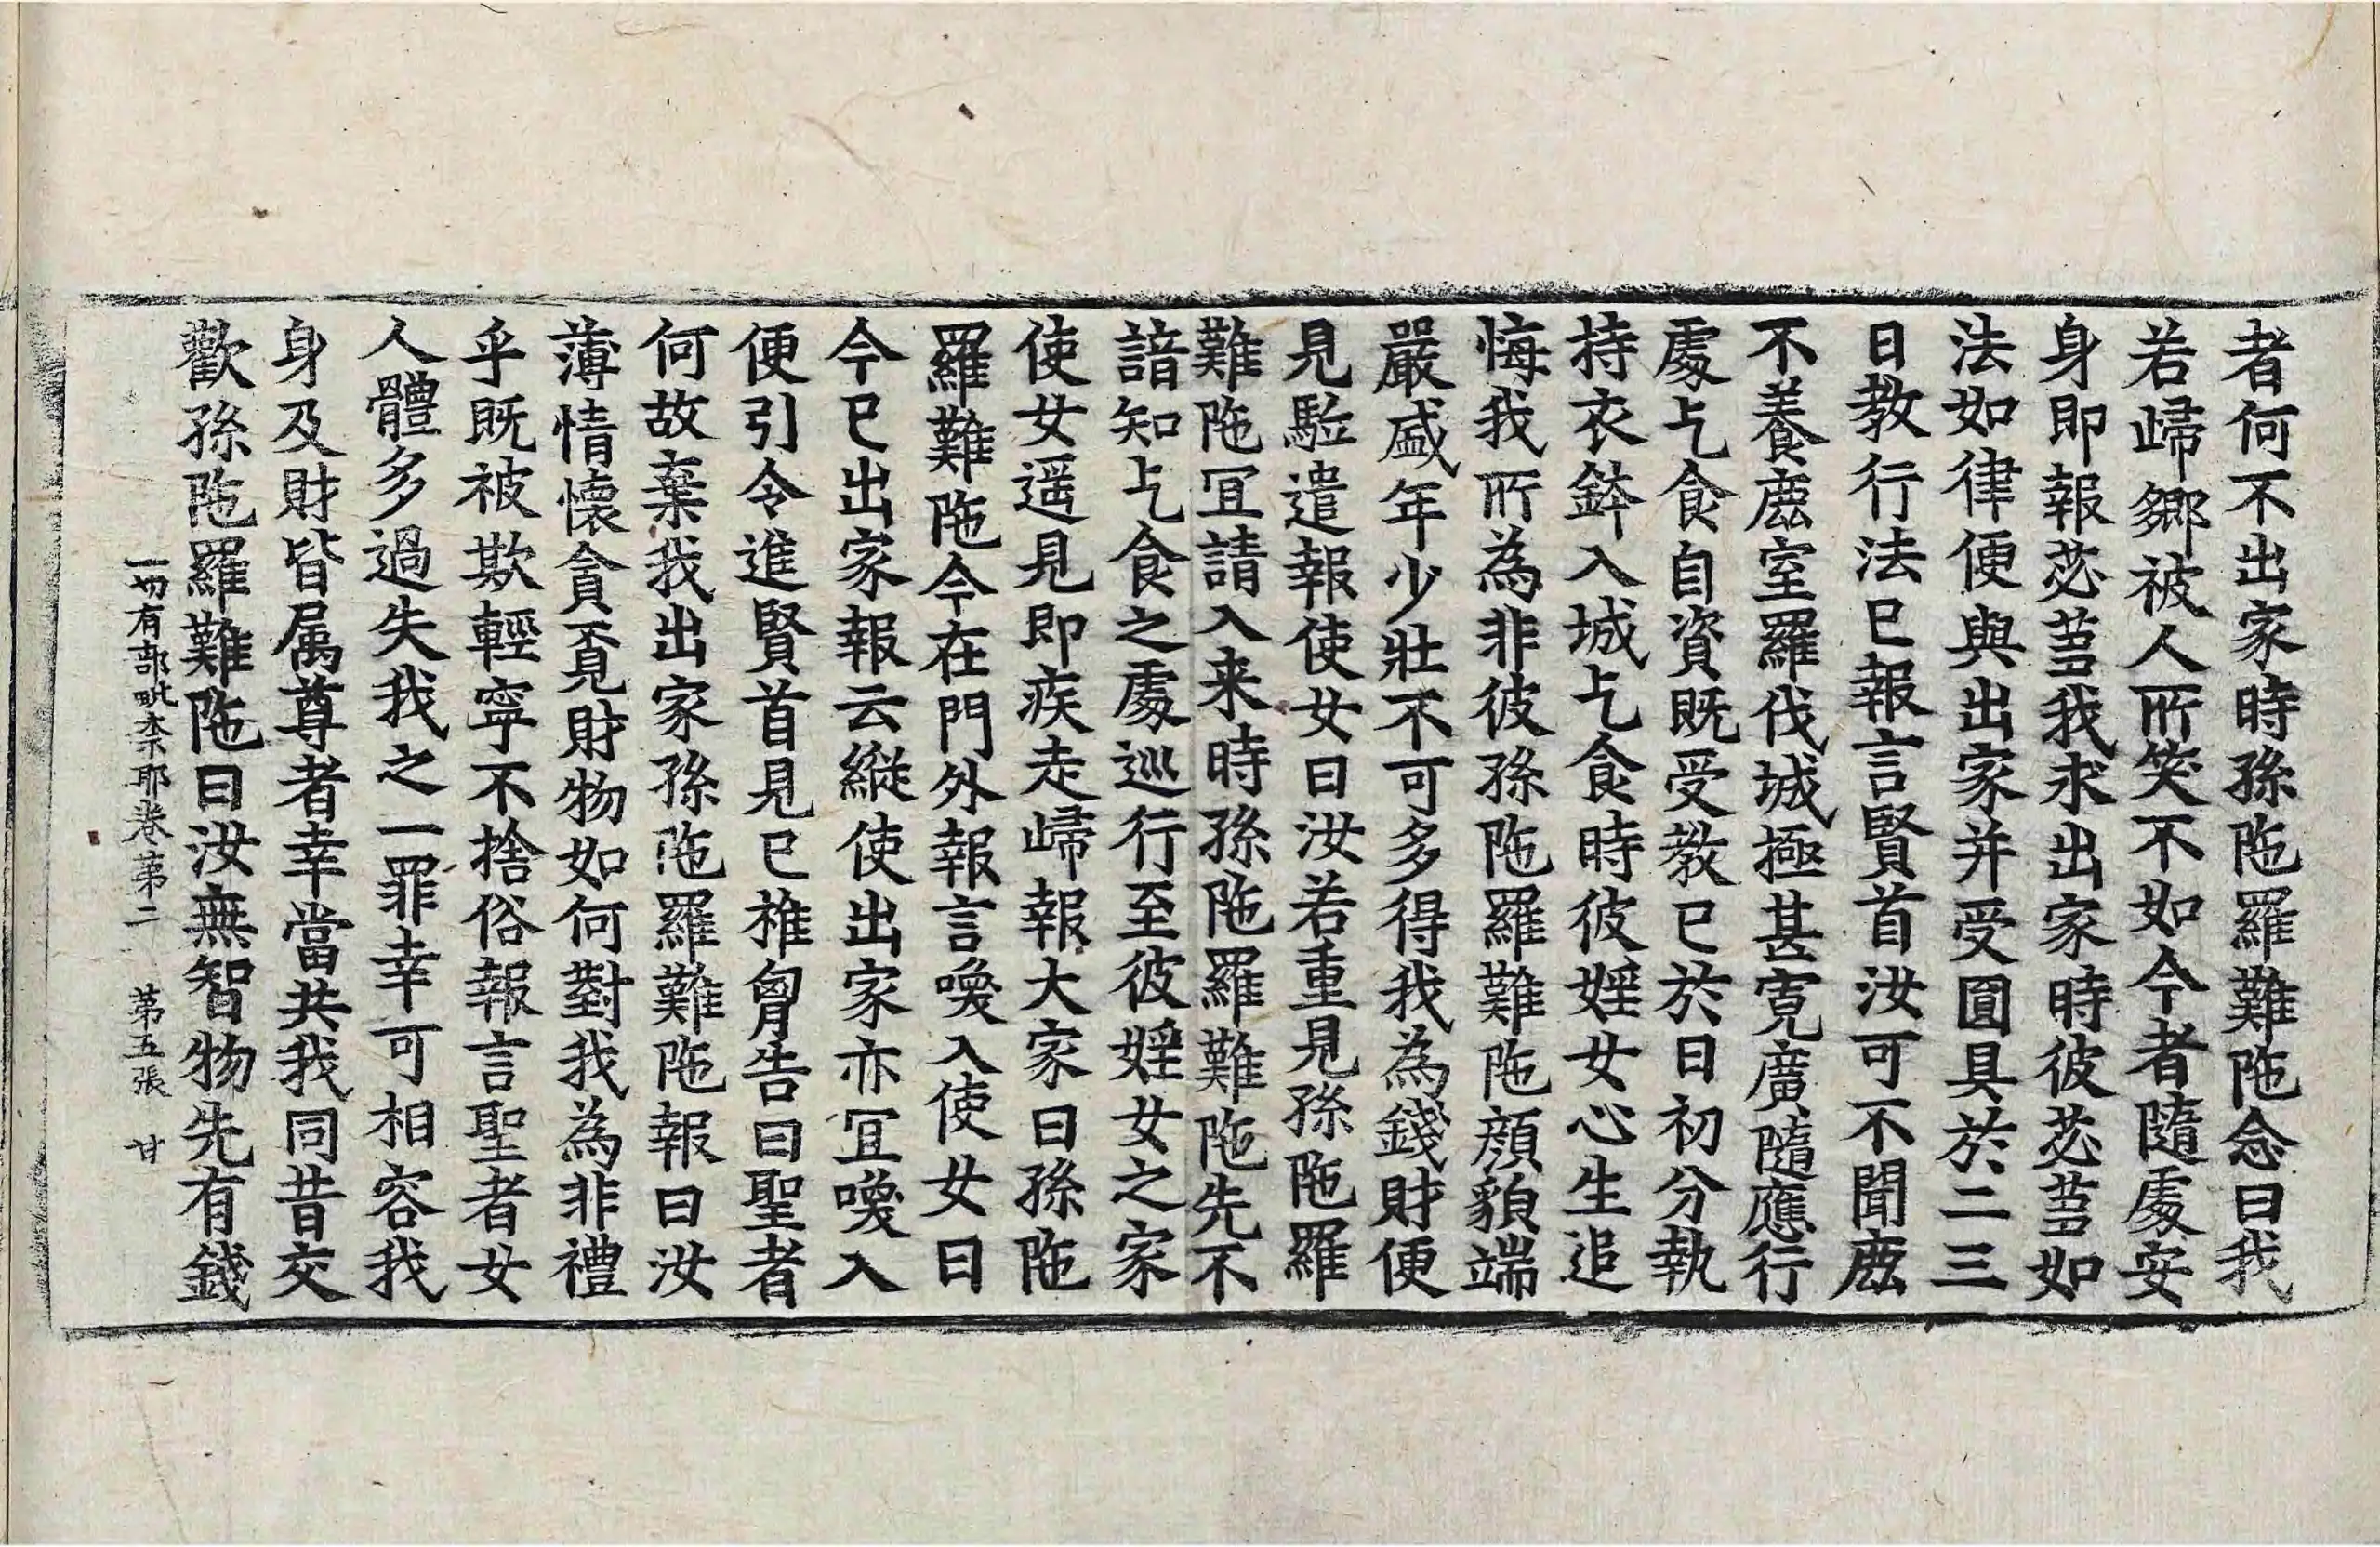 者何不出家時孫陁羅難陁念曰我
若歸鄉被人所笑不如今者隨處安
身即報苾蒭我求出家時彼苾蒭如
法如律便與出家并受圓具於二三
日教行法已報言賢首汝可不聞鹿
不養鹿室羅伐城極甚寬廣隨應行
處乞食自資既受教已於日初分執
持衣鉢入城乞食時彼婬女心生追
悔我所為非彼孫陁羅難陁顔貌端
嚴盛年少壯不可多得我為錢財便
見駈遣報使女曰汝若重見孫陁羅
難陁冝請入来時孫陁羅難陁先不
諳知乞食之處巡行至彼婬女之家
使女遥見即疾走歸報大家曰孫陁
羅難陁今在門外報言喚入使女曰
今已出家報云縱使出家亦冝喚入
便引令進賢首見已椎胷告曰聖者
何故棄我出家孫陁羅難陁報曰汝
薄情懷貪覔財物如何對我為非禮
乎既被欺輕寧不捨俗報言聖者女
人體多過失我之一罪幸可相容我
身及財皆属尊者幸當共我同昔交
歡孫陁羅難陁曰汝無智物先有錢
一切有部毗柰耶卷第二 第五張 甘